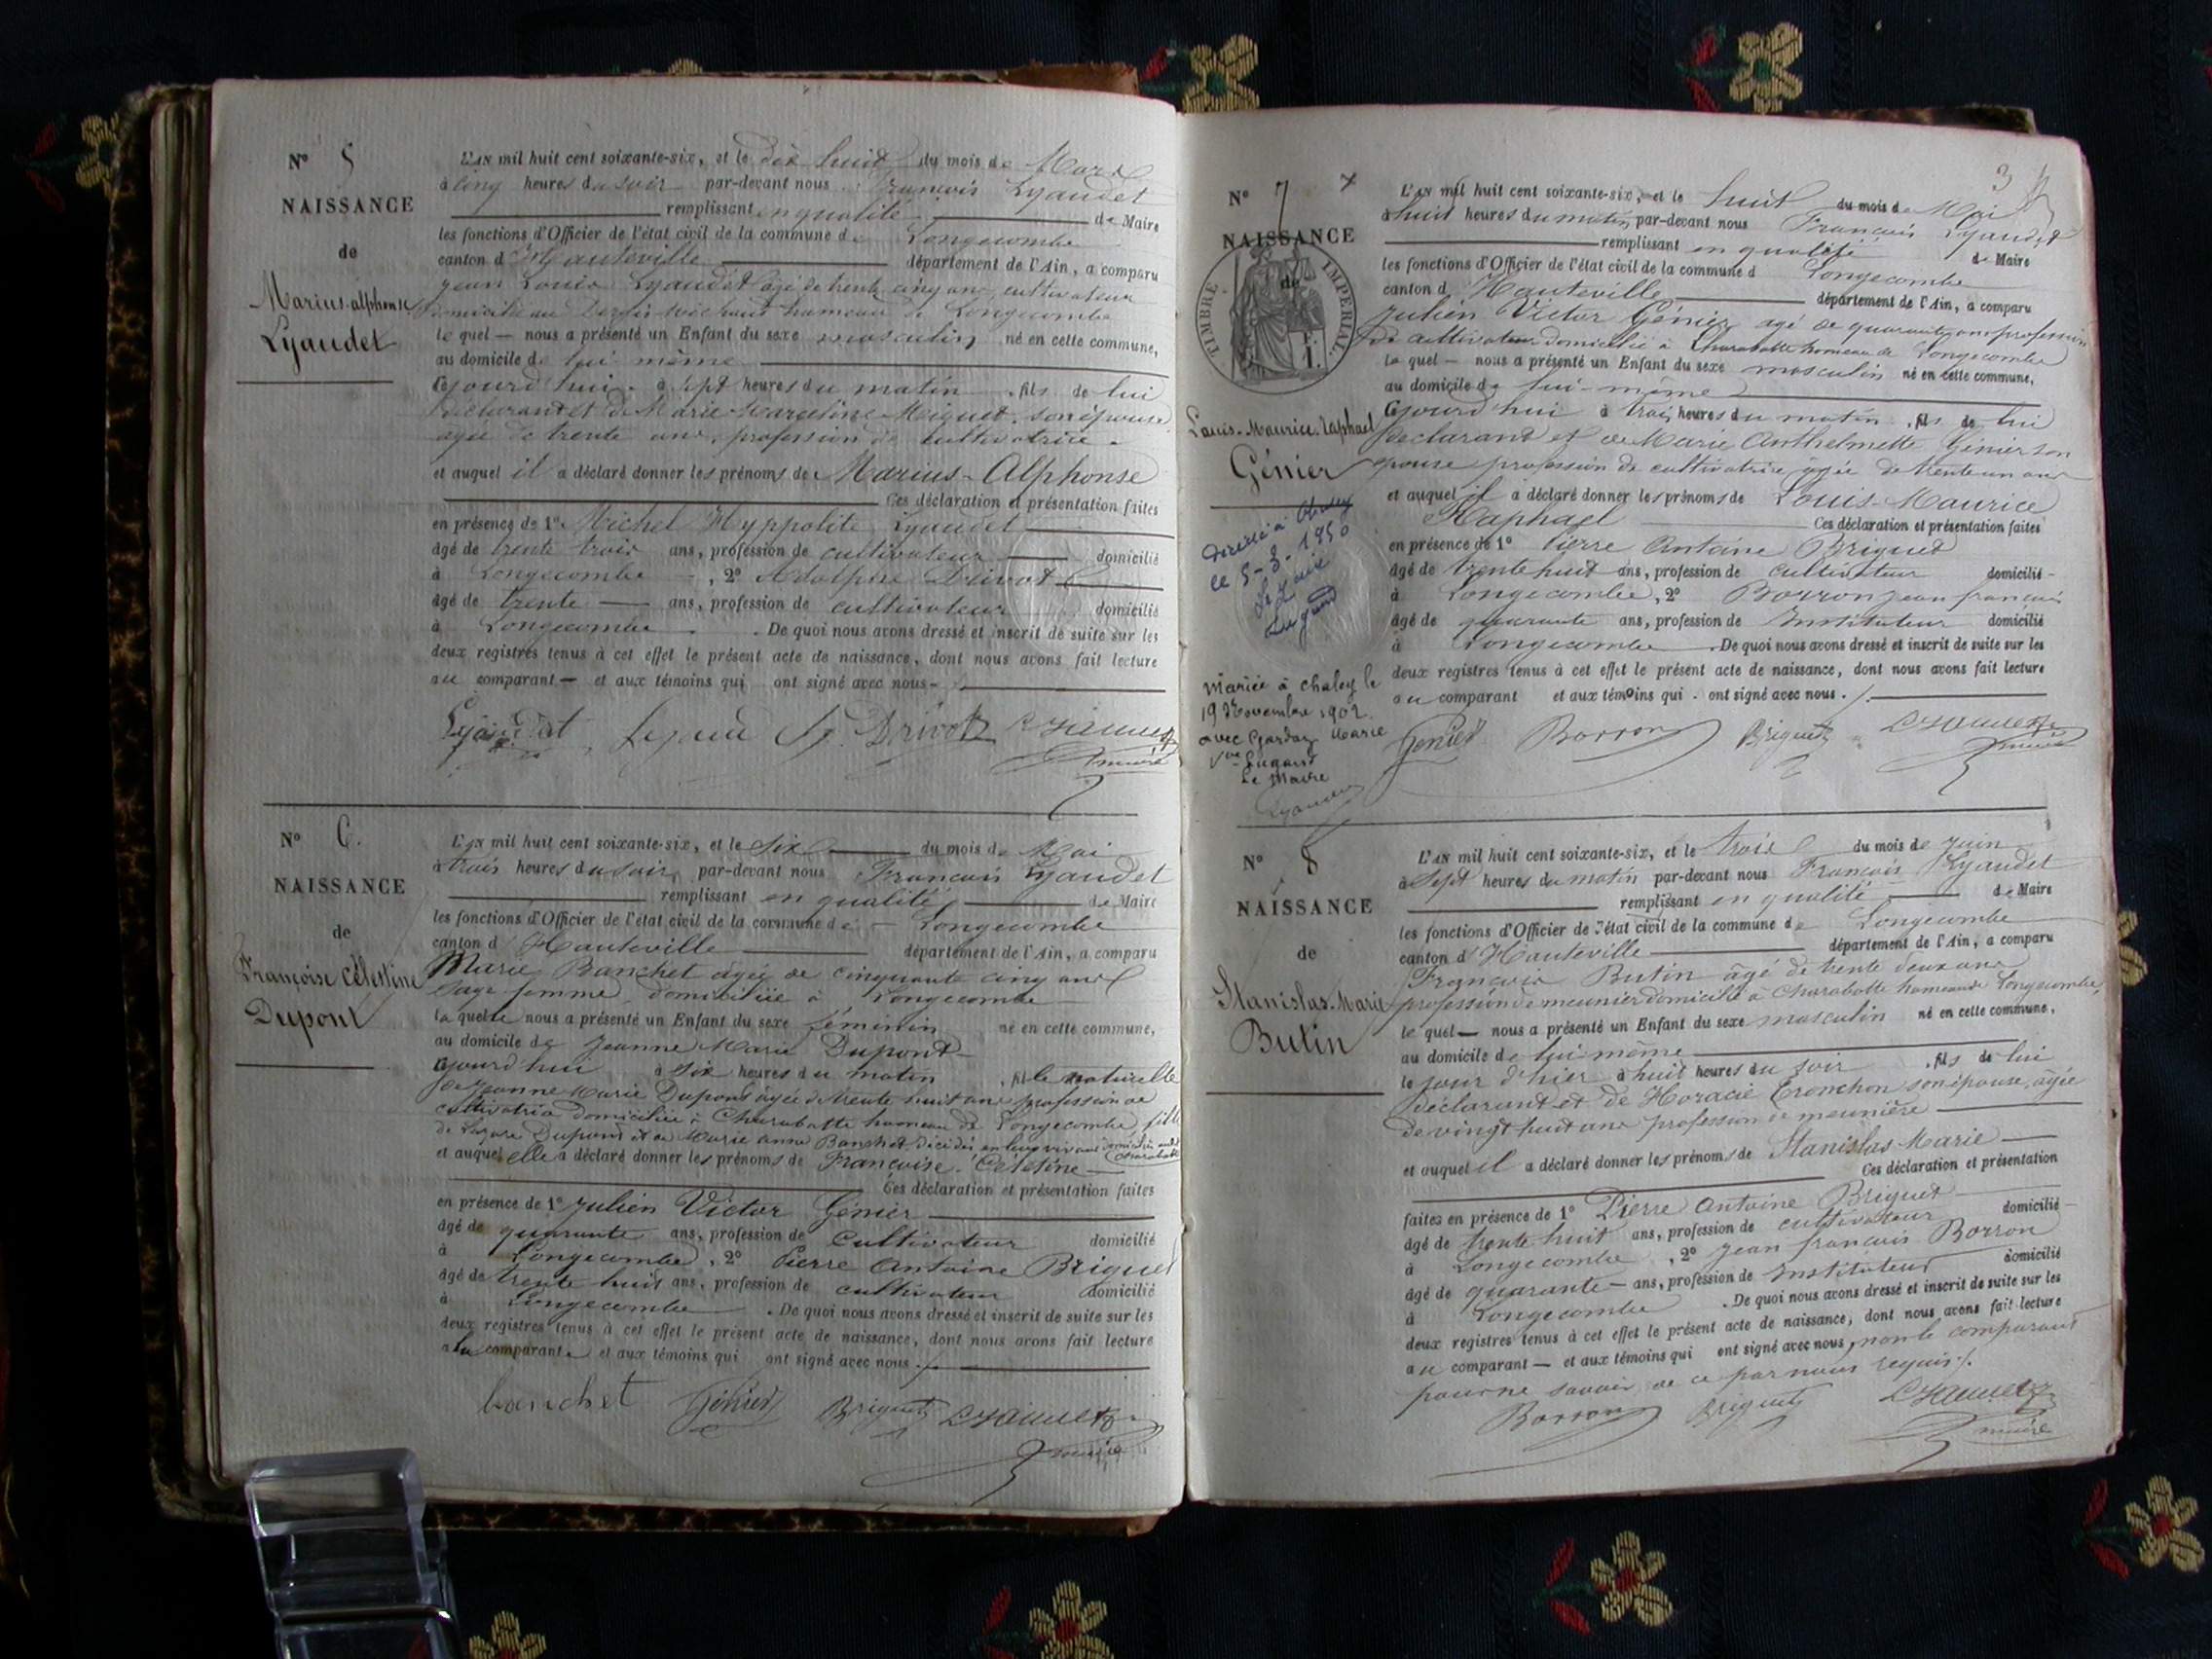 N° 5
NAISSANCE
de
Marius-alphonse
Lyaudet
L'AN mil huit cent soixante-six, et le dix huit du mois de Mars
à cinq heures du soir par-devant nous François Lyaudet
remplissant en qualité de Maire
les fonctions d'Officier de l'état civil de la commune de Longecombe
canton d'Hauteville département de l'Ain, a comparu
jean Louis Lyaudet âgé de trente cinq ans, cultivateur
domicilié au hameau de Longecombe
le quel — nous a présenté un Enfant du sexe masculin né en cette commune,
au domicile de lui même
cejourd'hui à sept heures du matin, fils de lui
déclarant et de Marie Marceline Miguet, son épouse
agée de trente ans, profession de cultivatrice
et auquel il a déclaré donner les prénoms de Marius-Alphonse
Ces déclaration et présentation faites
en présence de 1° Michel Hyppolite Lyaudet
âgé de trente trois ans, profession de cultivateur domicilié
à Longecombe, 2° Adolphe Drivot
âgé de trente ans, profession de cultivateur domicilié
à Longecombe. De quoi nous avons dressé et inscrit de suite sur les
deux registres tenus à cet effet le présent acte de naissance, dont nous avons fait lecture
au comparant — et aux témoins qui ont signé avec nous
Lyaudet Drivot
maire
N° 6.
NAISSANCE
de
Françoise Célestine
Dupont
L'AN mil huit cent soixante-six, et le Six du mois de Mai
à trois heures du soir, par-devant nous François Lyaudet
remplissant en qualité de Maire
les fonctions d'Officier de l'état civil de la commune de Longecombe
canton d'Hauteville département de l'Ain, a comparu
Marie Banchet âgée de cinquante cinq ans
Sage femme, domiciliée à Longecombe
la quelle nous a présenté un Enfant du sexe féminin né en cette commune,
au domicile de Jeanne Marie Dupont
cejourd'hui à six heures du matin, fille naturelle
de Jeanne Marie Dupont âgée de trente huit ans profession de
cultivatrice domiciliée à Charabotte hameau de Longecombe, fille
de Lazare Dupont et de Marie anne Banchet décédés en leur vivant domiciliés audit Charabotte
et auquel elle a déclaré donner les prénoms de Françoise Célestine
Ces déclaration et présentation faites
en présence de 1° Julien Victor Génier
âgé de quarante ans, profession de cultivateur domicilié
à Longecombe, 2° Pierre Antoine Briguet
âgé de trente huit ans, profession de cultivateur domicilié
à Longecombe. De quoi nous avons dressé et inscrit de suite sur les
deux registres tenus à cet effet le présent acte de naissance, dont nous avons fait lecture
a la comparante et aux témoins qui ont signé avec nous
banchet Génier Briguet
maire
3
N° 7
NAISSANCE
de
TIMBRE IMPERIAL
Louis-Maurice Raphael
Génier
décédé à Chaley
ce 5-3-1950
Le Maire
Lugand
Mariée à Chaley le
19 Novembre 1902
avec Gardaz Marie
Vve Lugand
Le Maire
Lyaudet
L'AN mil huit cent soixante-six, et le huit du mois de Mai
à huit heures du matin par-devant nous François Lyaudet
remplissant en qualité de Maire
les fonctions d'Officier de l'état civil de la commune d Longecombe
canton d Hauteville département de l'Ain, a comparu
Julien Victor Génier agé de quarante ans profession
de cultivateur domicilié à Charabotte hameau de Longecombe
le quel — nous a présenté un Enfant du sexe masculin né en cette commune,
au domicile de lui-même
cejourd'hui à trois heures du matin, fils de lui
déclarant et de Marie Anthelmette Génier son
épouse profession de cultivatrice âgée de trente un ans
et auquel il a déclaré donner les prénoms de Louis-Maurice
Raphael Ces déclaration et présentation faites
en présence de 1° Pierre Antoine Briguet
âgé de trente huit ans, profession de cultivateur domicilié
à Longecombe, 2° Borron jean françois
âgé de quarante ans, profession de Instituteur domicilié
à Longecombe. De quoi nous avons dressé et inscrit de suite sur les
deux registres tenus à cet effet le présent acte de naissance, dont nous avons fait lecture
au comparant et aux témoins qui ont signé avec nous.
Génier Borron Briguet
maire
N° 8
NAISSANCE
de
Stanislas-Marie
Butin
L'AN mil huit cent soixante-six, et le trois du mois de juin
à Sept heures du matin par-devant nous François Lyaudet
remplissant en qualité de Maire
les fonctions d'Officier de l'état civil de la commune de Longecombe
canton d'Hauteville département de l'Ain, a comparu
François Butin âgé de trente deux ans
profession de meunier domicilié à Charabotte hameau de Longecombe,
le quel — nous a présenté un Enfant du sexe masculin né en cette commune,
au domicile de lui même
le jour d'hier à huit heures du soir, fils de lui
déclarant et de Horacie Tronchon son épouse, âgée
de vingt huit ans profession de meunière
et auquel il a déclaré donner les prénoms de Stanislas Marie
Ces déclaration et présentation
faites en présence de 1° Pierre Antoine Briguet
âgé de trente huit ans, profession de cultivateur domicilié
à Longecombe, 2° Jean françois Borron
âgé de quarante ans, profession de Instituteur domicilié
à Longecombe. De quoi nous avons dressé et inscrit de suite sur les
deux registres tenus à cet effet le présent acte de naissance, dont nous avons fait lecture
au comparant — et aux témoins qui ont signé avec nous, non le comparant
pour ne savoir de ce par nous requis.
Borron Briguet
maire